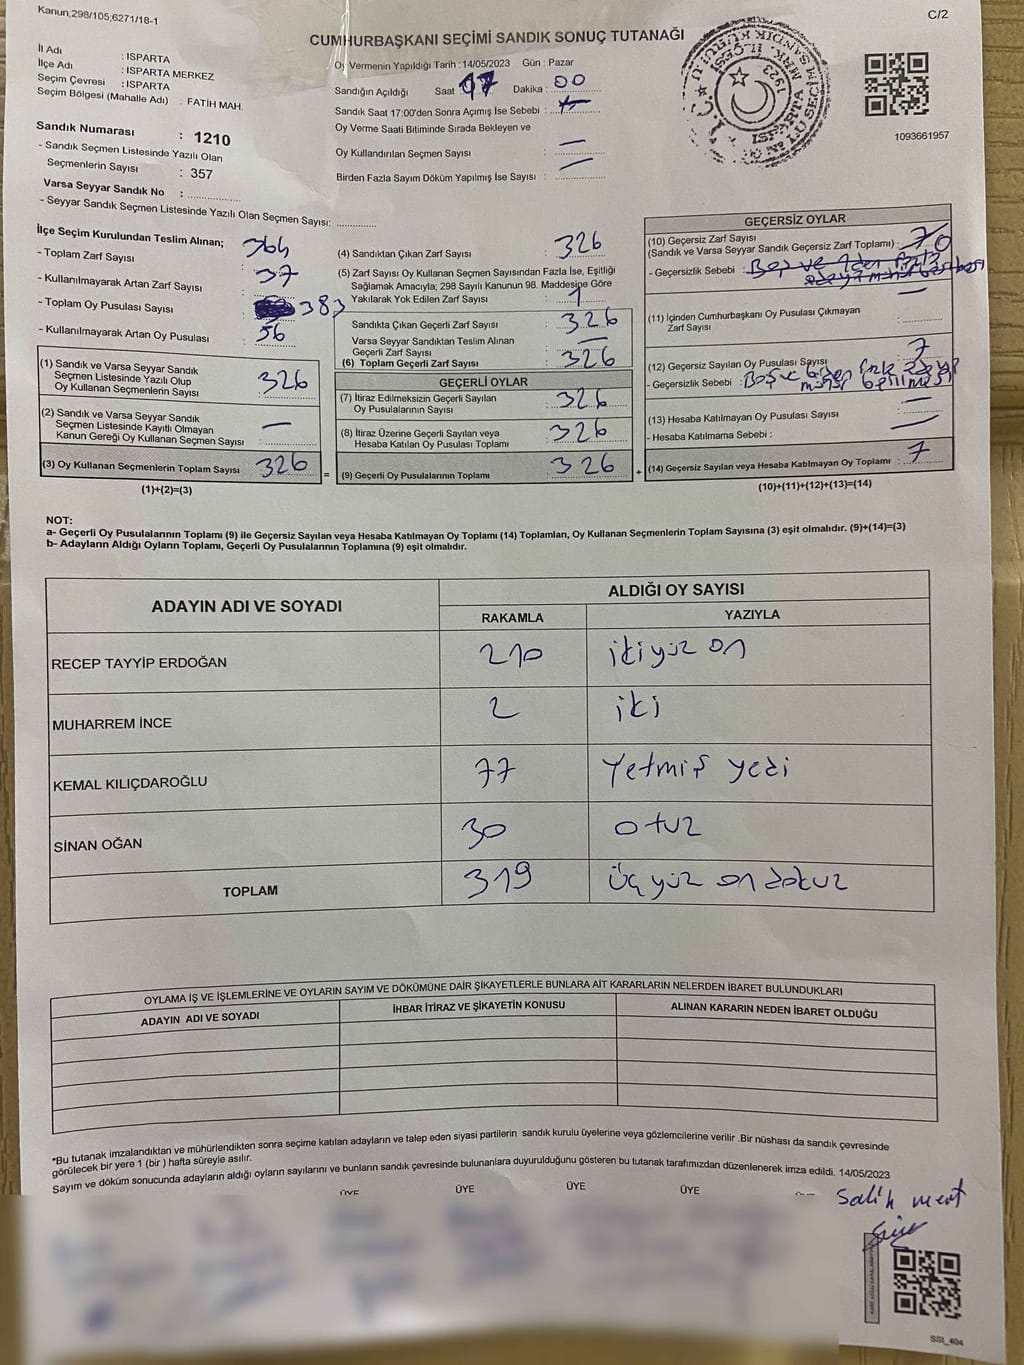 Kanun;298/105;6271/18-1
C/2
CUMHURBAŞKANI SEÇİMİ SANDIK SONUÇ TUTANAĞI
İl Adı : ISPARTA
İlçe Adı : ISPARTA MERKEZ
Seçim Çevresi : ISPARTA
Seçim Bölgesi (Mahalle Adı) : FATİH MAH.
Oy Vermenin Yapıldığı Tarih :14/05/2023 Gün : Pazar
Sandığın Açıldığı Saat 17 Dakika : 00
Sandık Saat 17:00'den Sonra Açımış İse Sebebi :
Oy Verme Saati Bitiminde Sırada Bekleyen ve
Oy Kullandırılan Seçmen Sayısı : —
Birden Fazla Sayım Döküm Yapılmış İse Sayısı : —
1093661957
Sandık Numarası : 1210
- Sandık Seçmen Listesinde Yazılı Olan
Seçmenlerin Sayısı : 357
Varsa Seyyar Sandık No :
- Seyyar Sandık Seçmen Listesinde Yazılı Olan Seçmen Sayısı:
İlçe Seçim Kurulundan Teslim Alınan;
- Toplam Zarf Sayısı : 364
- Kullanılmayarak Artan Zarf Sayısı : 37
- Toplam Oy Pusulası Sayısı : 383
- Kullanılmayarak Artan Oy Pusulası : 56
(1) Sandık ve Varsa Seyyar Sandık
Seçmen Listesinde Yazılı Olup
Oy Kullanan Seçmenlerin Sayısı : 326
(2) Sandık ve Varsa Seyyar Sandık
Seçmen Listesinde Kayıtlı Olmayan
Kanun Gereği Oy Kullanan Seçmen Sayısı : —
(3) Oy Kullanan Seçmenlerin Toplam Sayısı : 326 =
(1)+(2)=(3)
(4) Sandıktan Çıkan Zarf Sayısı : 326
(5) Zarf Sayısı Oy Kullanan Seçmen Sayısından Fazla İse, Eşitliği
Sağlamak Amacıyla; 298 Sayılı Kanunun 98. Maddesine Göre
Yakılarak Yok Edilen Zarf Sayısı : 1
Sandıkta Çıkan Geçerli Zarf Sayısı : 326
Varsa Seyyar Sandıktan Teslim Alınan
Geçerli Zarf Sayısı : —
(6) Toplam Geçerli Zarf Sayısı : 326
GEÇERLİ OYLAR
(7) İtiraz Edilmeksizin Geçerli Sayılan
Oy Pusulalarının Sayısı : 326
(8) İtiraz Üzerine Geçerli Sayılan veya
Hesaba Katılan Oy Pusulası Toplamı : 326
(9) Geçerli Oy Pusulalarının Toplamı : 326 +
GEÇERSİZ OYLAR
(10) Geçersiz Zarf Sayısı
(Sandık ve Varsa Seyyar Sandık Geçersiz Zarf Toplamı) : 0
- Geçersizlik Sebebi :
(11) İçinden Cumhurbaşkanı Oy Pusulası Çıkmayan
Zarf Sayısı : —
(12) Geçersiz Sayılan Oy Pusulası Sayısı : 7
- Geçersizlik Sebebi : Boş ve birden fazla
(13) Hesaba Katılmayan Oy Pusulası Sayısı : —
- Hesaba Katılmama Sebebi : —
(14) Geçersiz Sayılan veya Hesaba Katılmayan Oy Toplamı : 7
(10)+(11)+(12)+(13)=(14)
NOT:
a- Geçerli Oy Pusulalarının Toplamı (9) ile Geçersiz Sayılan veya Hesaba Katılmayan Oy Toplamı (14) Toplamları, Oy Kullanan Seçmenlerin Toplam Sayısına (3) eşit olmalıdır. (9)+(14)=(3)
b- Adayların Aldığı Oyların Toplamı, Geçerli Oy Pusulalarının Toplamına (9) eşit olmalıdır.
ADAYIN ADI VE SOYADI ALDIĞI OY SAYISI
RAKAMLA YAZIYLA
RECEP TAYYİP ERDOĞAN 210 ikiyüz on
MUHARREM İNCE 2 iki
KEMAL KILIÇDAROĞLU 77 Yetmiş yedi
SİNAN OĞAN 30 otuz
TOPLAM 319 Üçyüz on dokuz
OYLAMA İŞ VE İŞLEMLERİNE VE OYLARIN SAYIM VE DÖKÜMÜNE DAİR ŞİKAYETLERLE BUNLARA AİT KARARLARIN NELERDEN İBARET BULUNDUKLARI
ADAYIN ADI VE SOYADI İHBAR İTİRAZ VE ŞİKAYETİN KONUSU ALINAN KARARIN NEDEN İBARET OLDUĞU
*Bu tutanak imzalandıktan ve mühürlendikten sonra seçime katılan adayların ve talep eden siyasi partilerin sandık kurulu üyelerine veya gözlemcilerine verilir .Bir nüshası da sandık çevresinde
görülecek bir yere 1 (bir ) hafta süreyle asılır.
Sayım ve döküm sonucunda adayların aldığı oyların sayılarını ve bunların sandık çevresinde bulunanlara duyurulduğunu gösteren bu tutanak tarafımızdan düzenlenerek imza edildi. 14/05/2023
ÜYE ÜYE ÜYE ÜYE
Salih mert
SSI_404